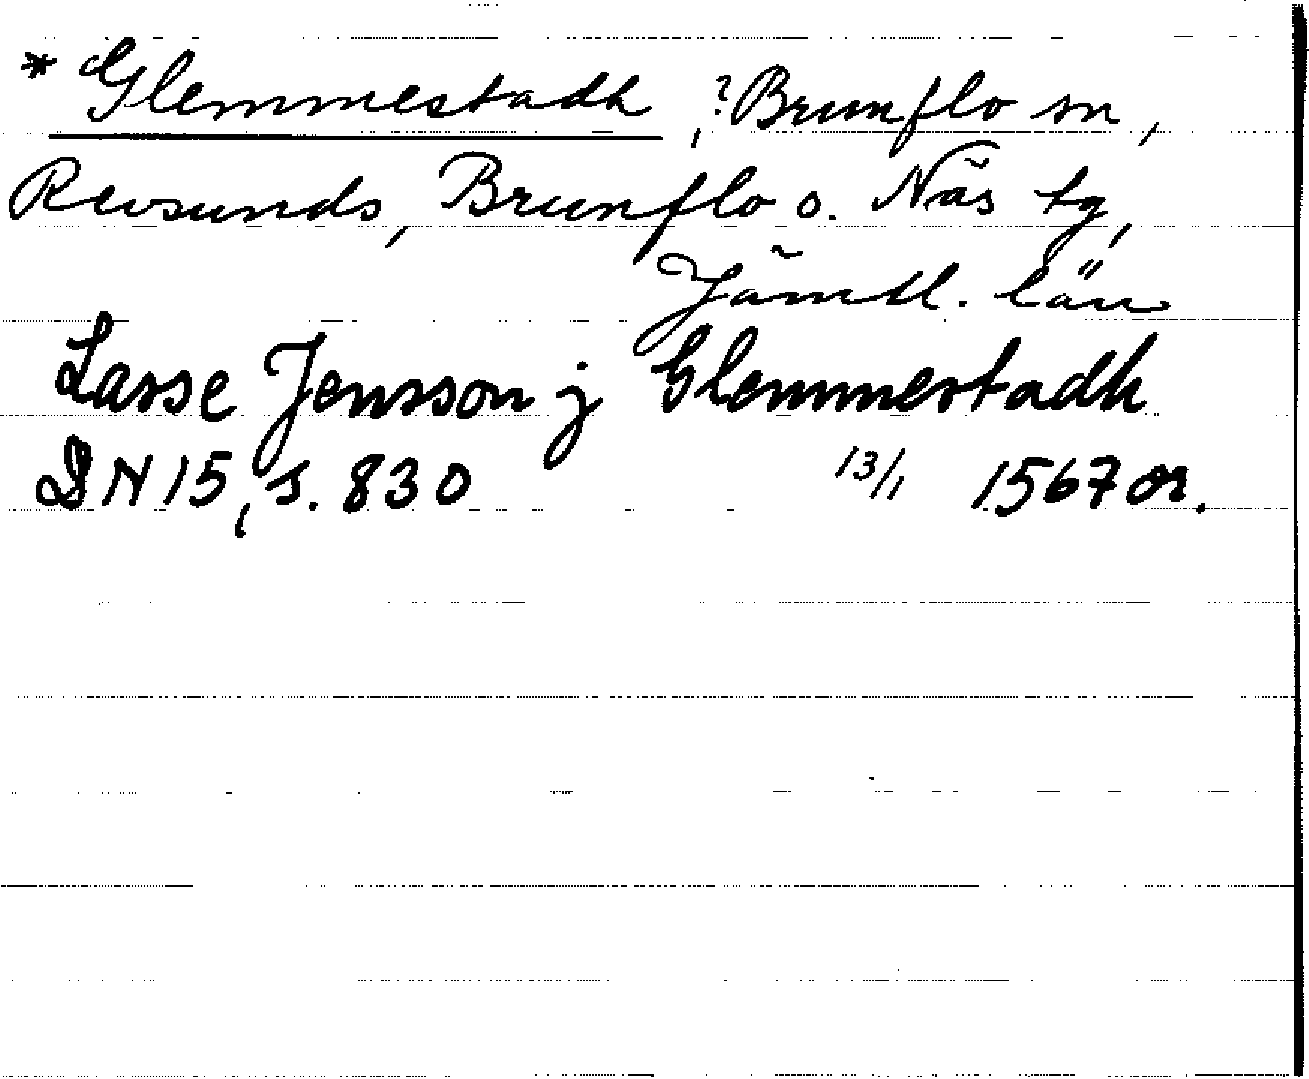 * Glemmestadh, ? Brunflo sn,
Revsunds, Brunflo o. Näs tg,
Jämtl. län
Lasse Jensson j Glemmestadh
DN 15, s. 830 13/1 1567 or.